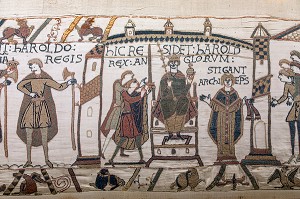 HAROLDO:
REGIS
HIC RE
SIDET: hAROLD
REX: AN
GLORVM:
STIGANT
ARChIEPS